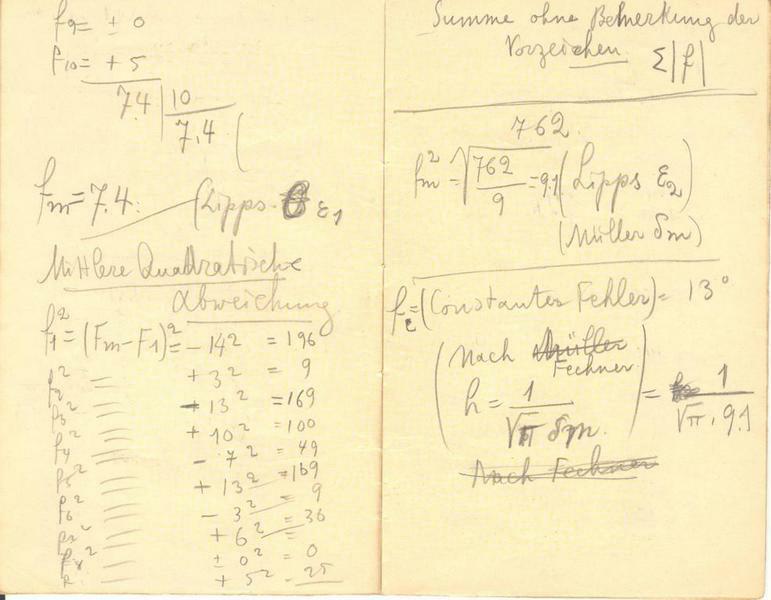 f9 = ± 0
f10 = + 5
74 | 10
7.4 (
fm = 7.4 : (Lipps ε1
Mittlere Quadratische
Abweichung
f1² = (Fm-F1)² = - 14² = 196
f2² = + 3² = 9
f3² = + 13² = 169
f4² + 10² = 100
f5² - 7² = 49
f6² + 13² = 169
- 3² = 9
+ 6² = 36
± 0² = 0
+ 5² - 25
Summe ohne Bemerkung der
Vorzeichen Σ|f|
762
fm² = √762/9 = 9.1 (Lipps ε2)
(Müller δm)
fc = (Constanter Fehler) = 13°
(Nach Müller
Fechner
h = 1/√π δm) = 1/√π . 9.1
Nach Fechner